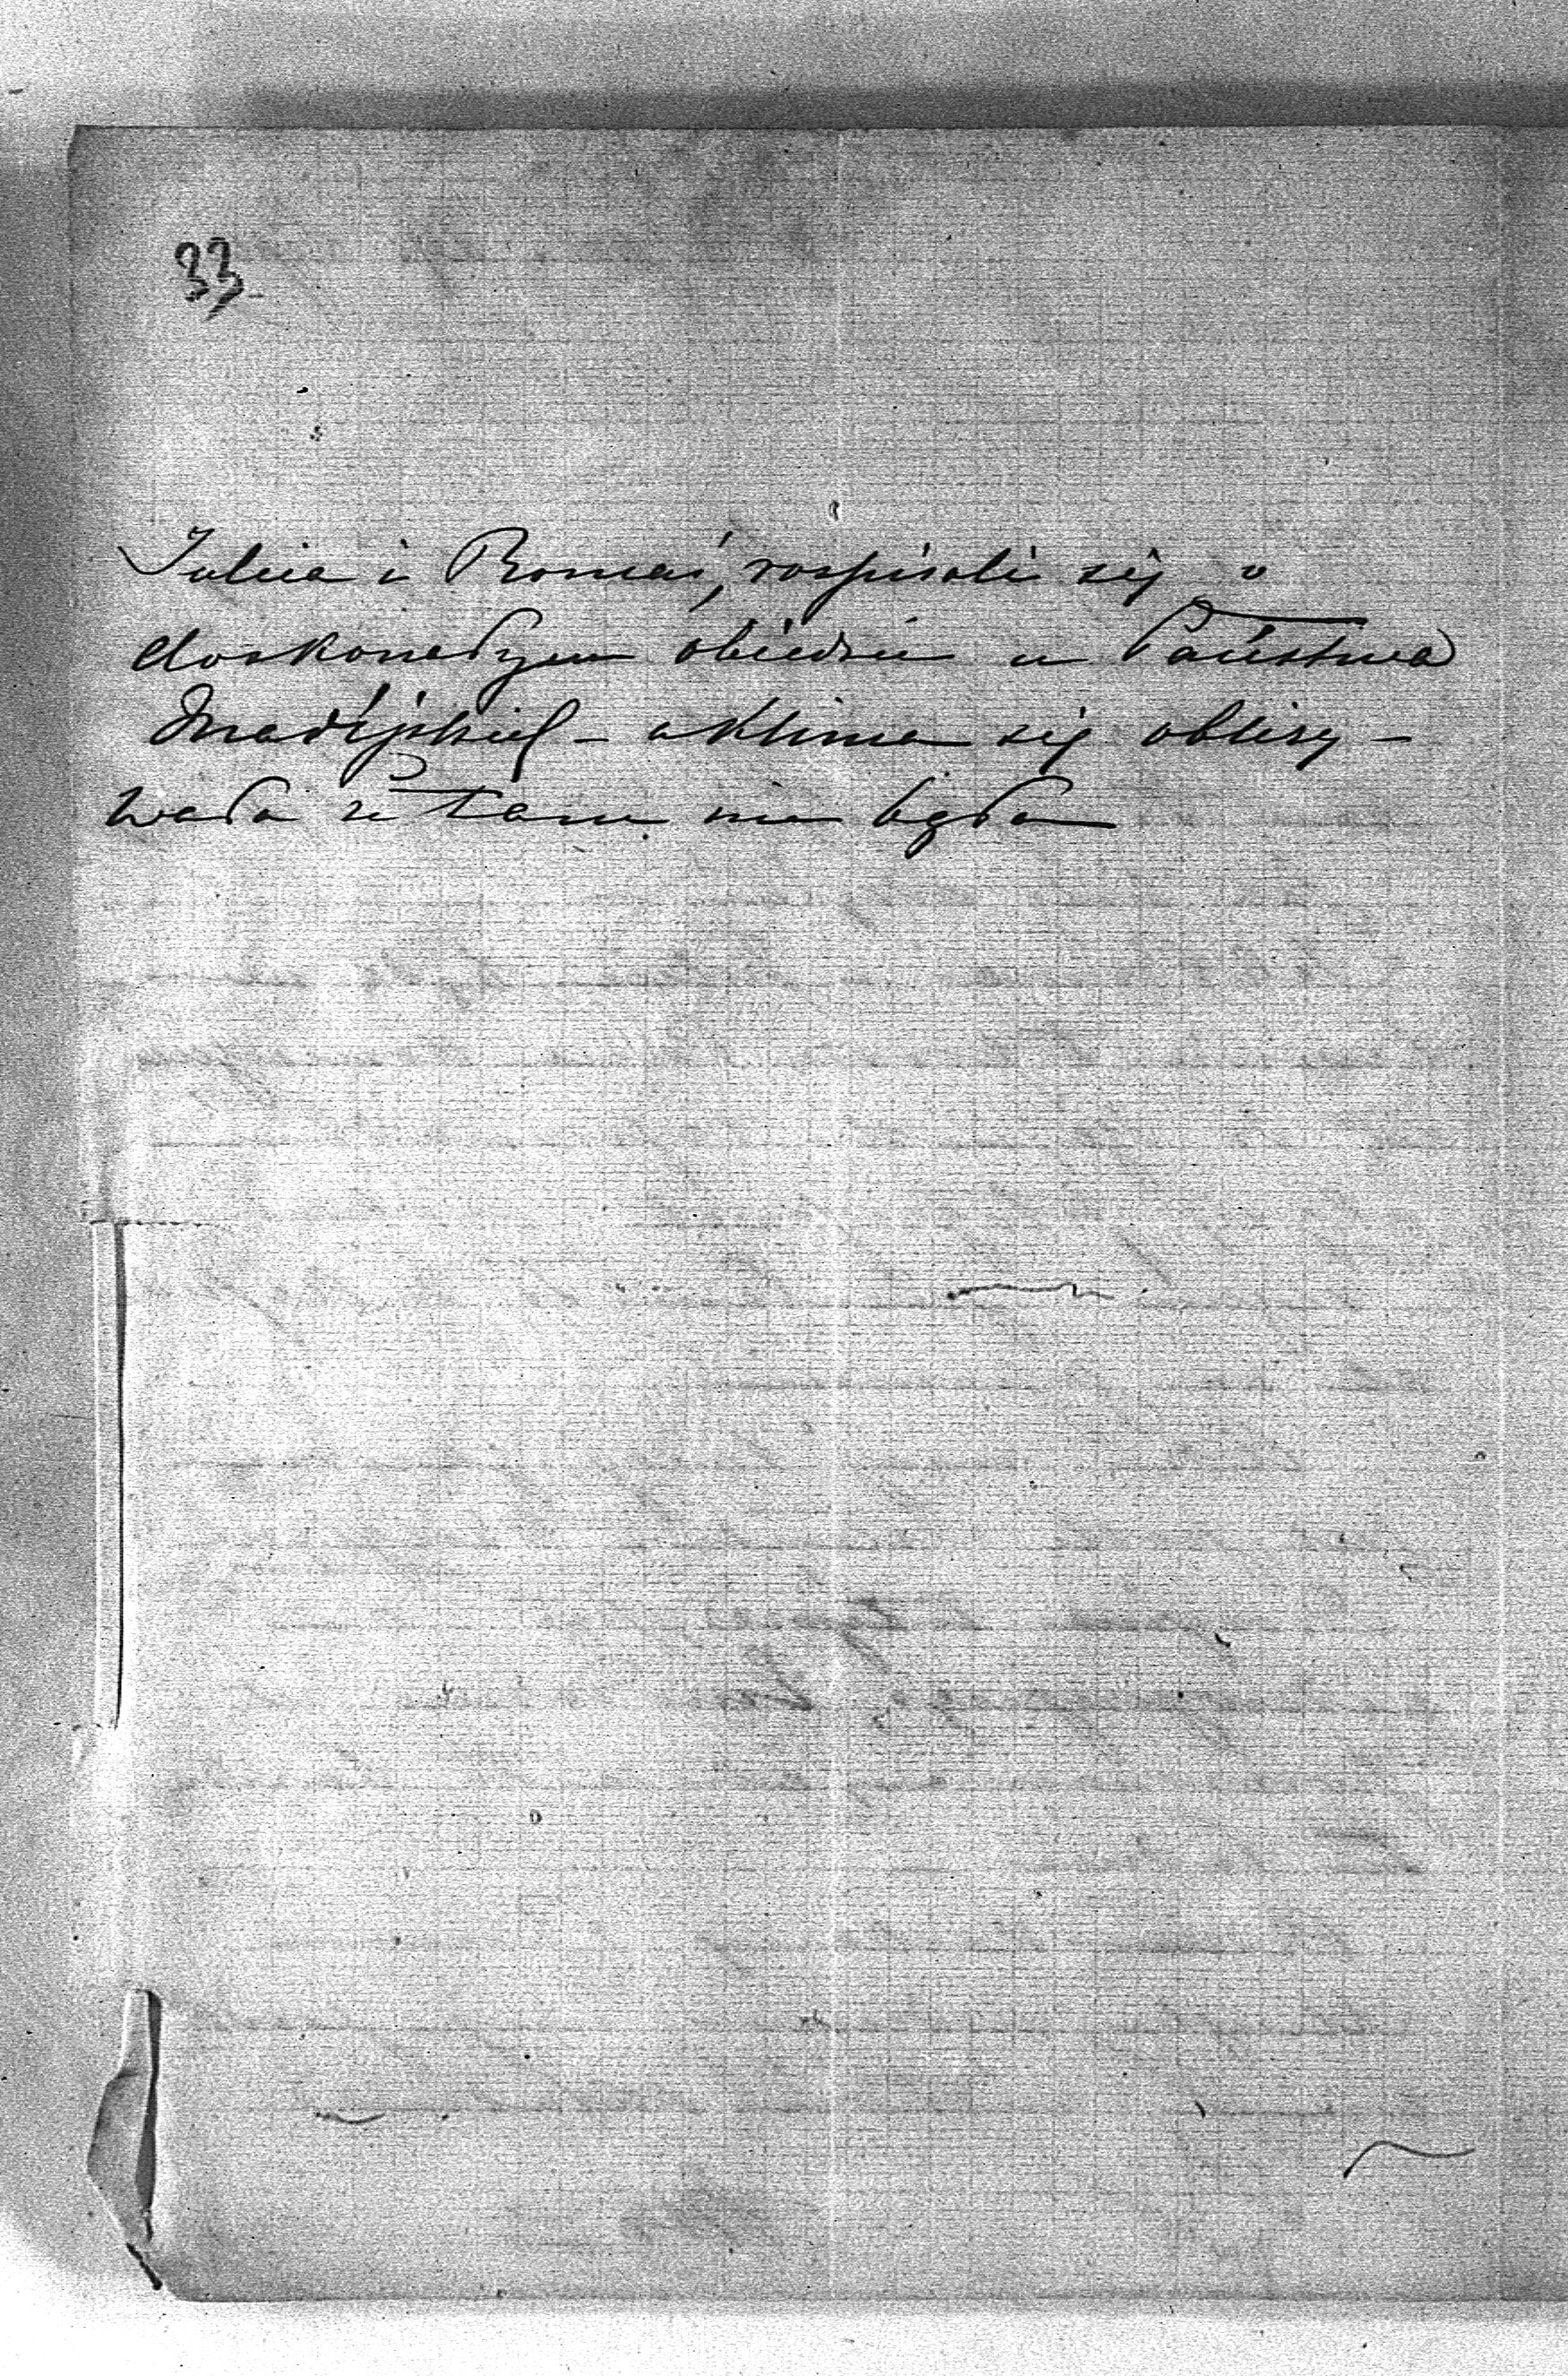 33
Julcia i Romuś, rospisali się o
doskonałym obiedzie u Państwa
Madéjskich – a Klima się oblizy –
wała że tam nie była